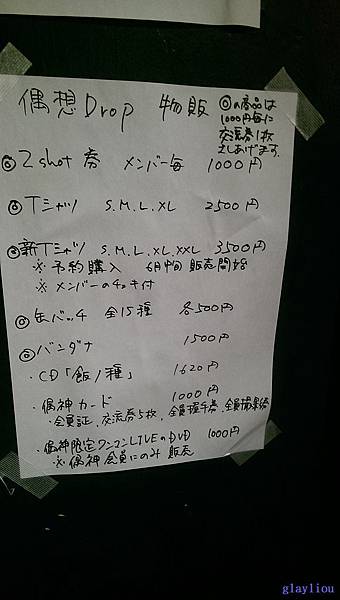 偶想Drop 物販
◎の商品は
1000円毎に
交流券1枚
さしあげます。
◎2shot券 メンバー毎 1000円
◎Tシャツ S.M.L.XL 2500円
◎新Tシャツ S.M.L.XL.XXL 3500円
※予約購入 6月中旬 販売開始
※メンバーのチェキ付
◎缶バッチ 全15種 各500円
◎バンダナ 1500円
・CD「飯ノ種」 1620円
・偶神カード 1000円
・会員証、交流券5枚、全員握手券、全員撮影券
・偶神限定ワンマンLIVEのDVD 1000円
※偶神会員にのみ販売
glayliou